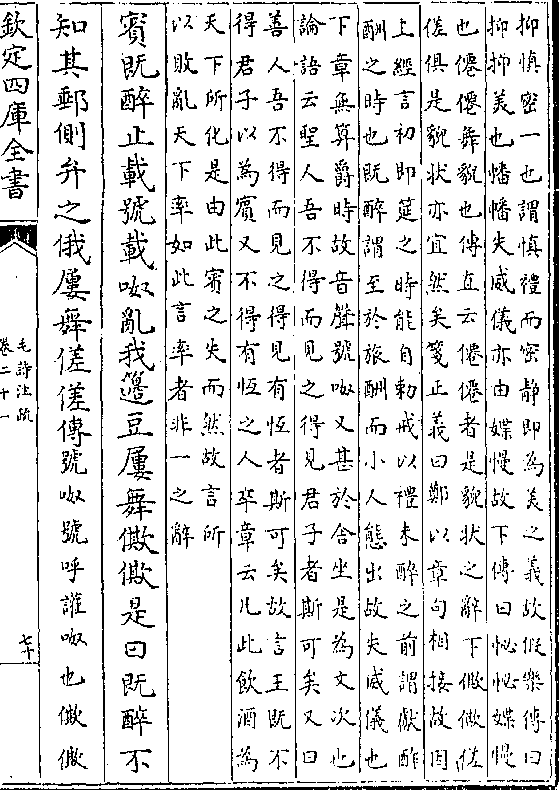 抑慎密一也謂慎禮而密静即為美之義故假樂傳曰
抑抑美也幡幡失威儀亦由媟慢故下傳曰怭怭媟慢
也僊僊舞貌也傳直云僊僊者是貌狀之辭下僛僛傞
傞俱是貌狀亦宜然矣箋正義曰鄭以章句相接故因
上經言初即筵之時能自勅戒以禮未醉之前謂獻酢
酬之時也既醉謂至於旅酬而小人態出故失威儀也
下章無算爵時故音聲號呶又甚於舍坐是為文次也
論語云聖人吾不得而見之得見君子者斯可矣又曰
善人吾不得而見之得見有恆者斯可矣故言王既不
得君子以為賓又不得有恆之人卒章云凡此飲酒為
天下所化是由此賓之失而然故言所
以敗亂天下率如此言率者非一之辭
賓既醉止載號載呶亂我籩豆屢舞僛僛是曰既醉不
知其郵側弁之俄屢舞傞傞傳號呶號呼讙呶也僛僛
欽定四庫全書
毛詩注疏
卷二十一
七十